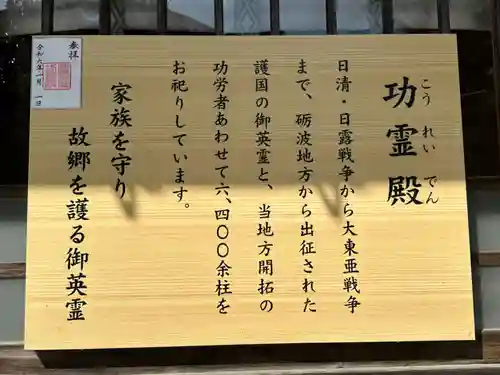 功霊殿
こうれいでん
日清・日露戦争から大東亜戦争
まで、砺波地方から出征された
護国の御英霊と、当地方開拓の
功労者あわせて六、四〇〇余柱を
お祀りしています。
家族を守り
故郷を護る御英霊
奉拝
令和六年一月一日